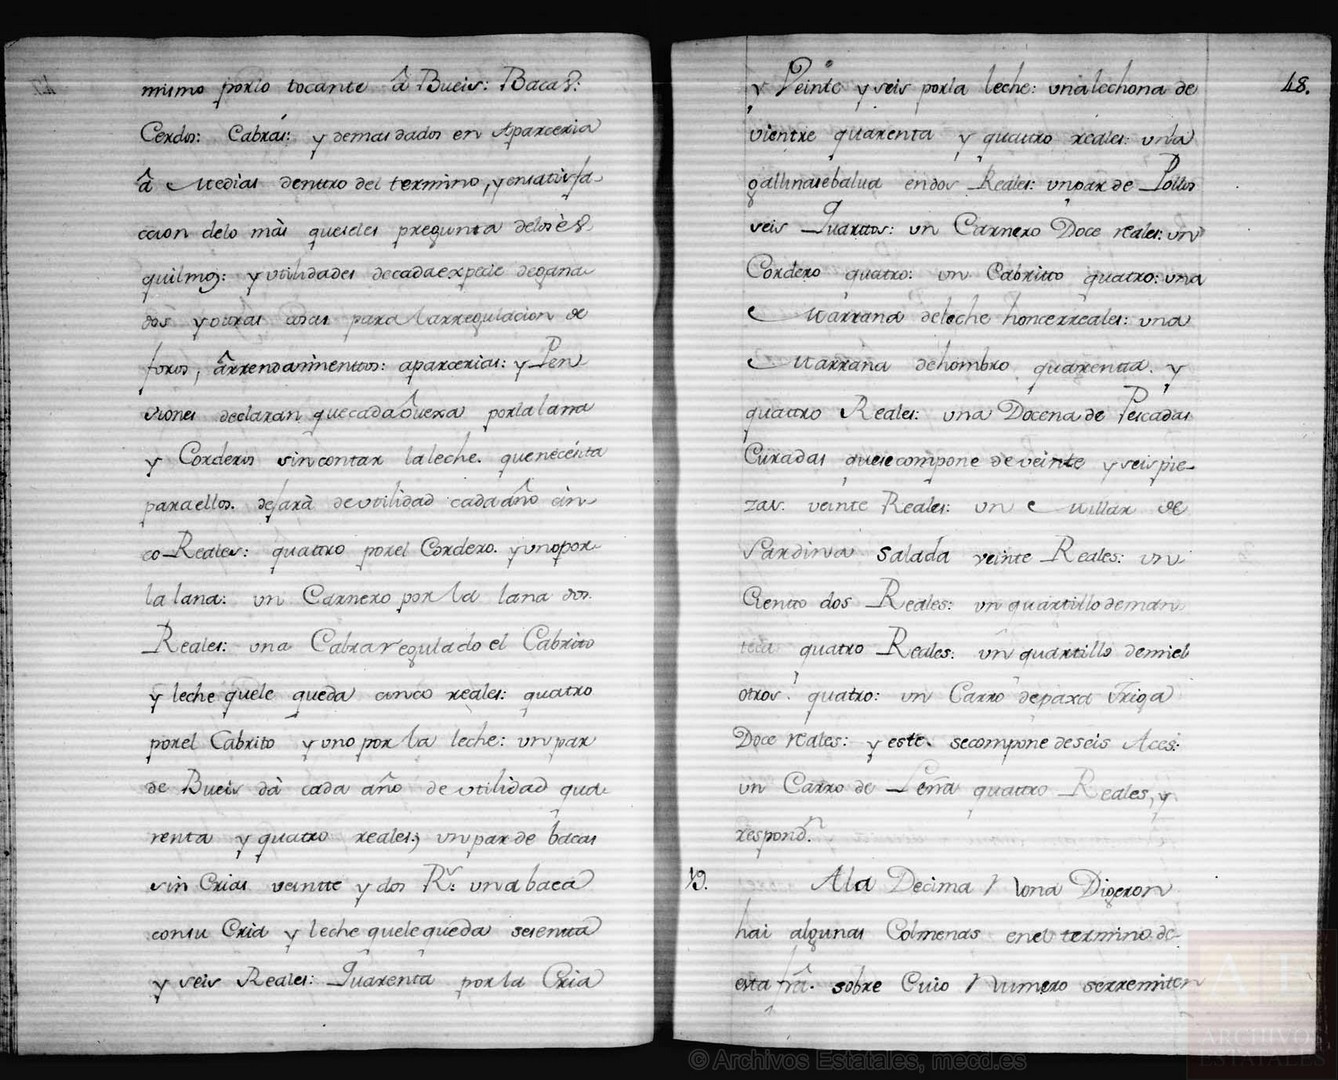 mismo porlo tocante â Bueis: Bacas:
Cerdos: Cabrás: y demas dados en Aparceria
â Medias dentro del termino, y ensatisfa-
ccion delo más queseles pregunta delos és
quilmos: y utilidades de cada expecie degana
dos y otras cosas para la rregulacion de
foros, ârrendamientos: aparcerias: y Pen
siones declaran que cada ôuexa por la lana
y Corderos sin contar la leche. que necésita
para ellos. dejará de utilidad cada año cin
co Reales: quattro por el Cordero. y uno por
la lana: un Carnero por la lana dos.
Reales: una Cabra regulado el Cabrito
y leche quele queda cinco reales: quatro
por el Cabrito y uno por la leche: un par
de Bueis dá cada año de utilidad qua-
renta y quatro reales; un par de bacas
sin Crias veintte y dos Rs: una baca
con su Cria y leche quele queda sesentta
y seis Reales: Quarenta por la Cria
48.
y Veinte y seis por la leche: una lechona de
vientre quarenta y quattro reales: una
gallina sebalua en dos Reales: un par de Pollos
seis Quartos: un Carnero Doce reales: un
Cordero quatro: un Cabritto quatro: una
Marrana de leche honce rreales: una
Marrana de hombro quarentta y
quattro Reales: una Docena de Pescadas
Curadas que se compone de veinte y seis pie-
zas veinte Reales: un Millar de
Sardina salada veinte Reales: un
Ciento dos Reales: un quartillo de man
teca quatro Reales: un quartillo de miel
otros quatro: un Carro de paxa Triga
Doce reales: y este se compone de seis Aces:
un Carro de Leña quattro Reales, y
respondn.
19. A la Decima Nona Digeron
hai algunas Colmenas en el termino de
esta frâ. sobre Cuio Numero serremiten
© Archivos Estatales, mecd.es
AE
ARCHIVOS
ESTATALES